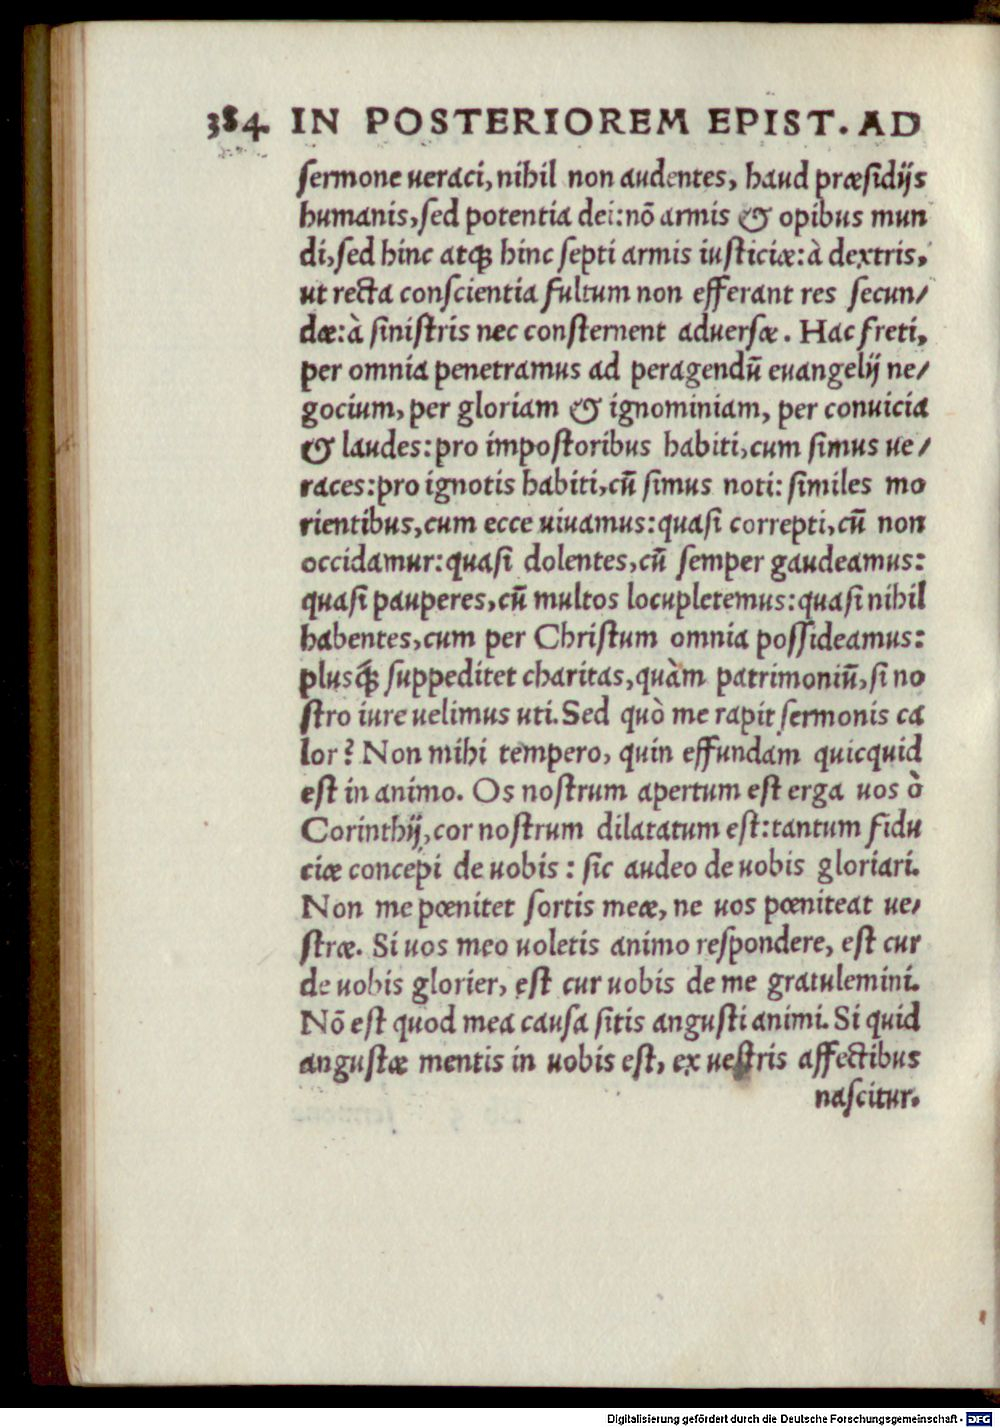 384. IN POSTERIOREM EPIST. AD
sermone ueraci, nihil non audentes, haud præsidijs
humanis, sed potentia dei: nō armis & opibus mun
di, sed hinc atqꝫ hinc septi armis iusticiæ: à dextris,
ut recta conscientia fultum non efferant res secun/
dæ: à sinistris nec consternent aduersæ. Hac freti,
per omnia penetramus ad peragendū euangelij ne/
gocium, per gloriam & ignominiam, per conuicia
& laudes: pro impostoribus habiti, cum simus ue/
races: pro ignotis habiti, cū simus noti: similes mo
rientibus, cum ecce uiuamus: quasi correpti, cū non
occidamur: quasi dolentes, cū semper gaudeamus:
quasi pauperes, cū multos locupletemus: quasi nihil
habentes, cum per Christum omnia possideamus:
plusqꝫ suppeditet charitas, quàm patrimoniū, si no
stro iure uelimus uti. Sed quò me rapit sermonis ca
lor? Non mihi tempero, quin effundam quicquid
est in animo. Os nostrum apertum est erga uos ò
Corinthij, cor nostrum dilatatum est: tantum fidu
ciæ concepi de uobis: sic audeo de uobis gloriari.
Non me pœnitet sortis meæ, ne uos pœniteat ue/
stræ. Si uos meo uoletis animo respondere, est cur
de uobis glorier, est cur uobis de me gratulemini.
Nō est quod mea causa sitis angusti animi. Si quid
angustæ mentis in uobis est, ex uestris affectibus
nascitur.
Digitalisierung gefördert durch die Deutsche Forschungsgemeinschaft - DFG